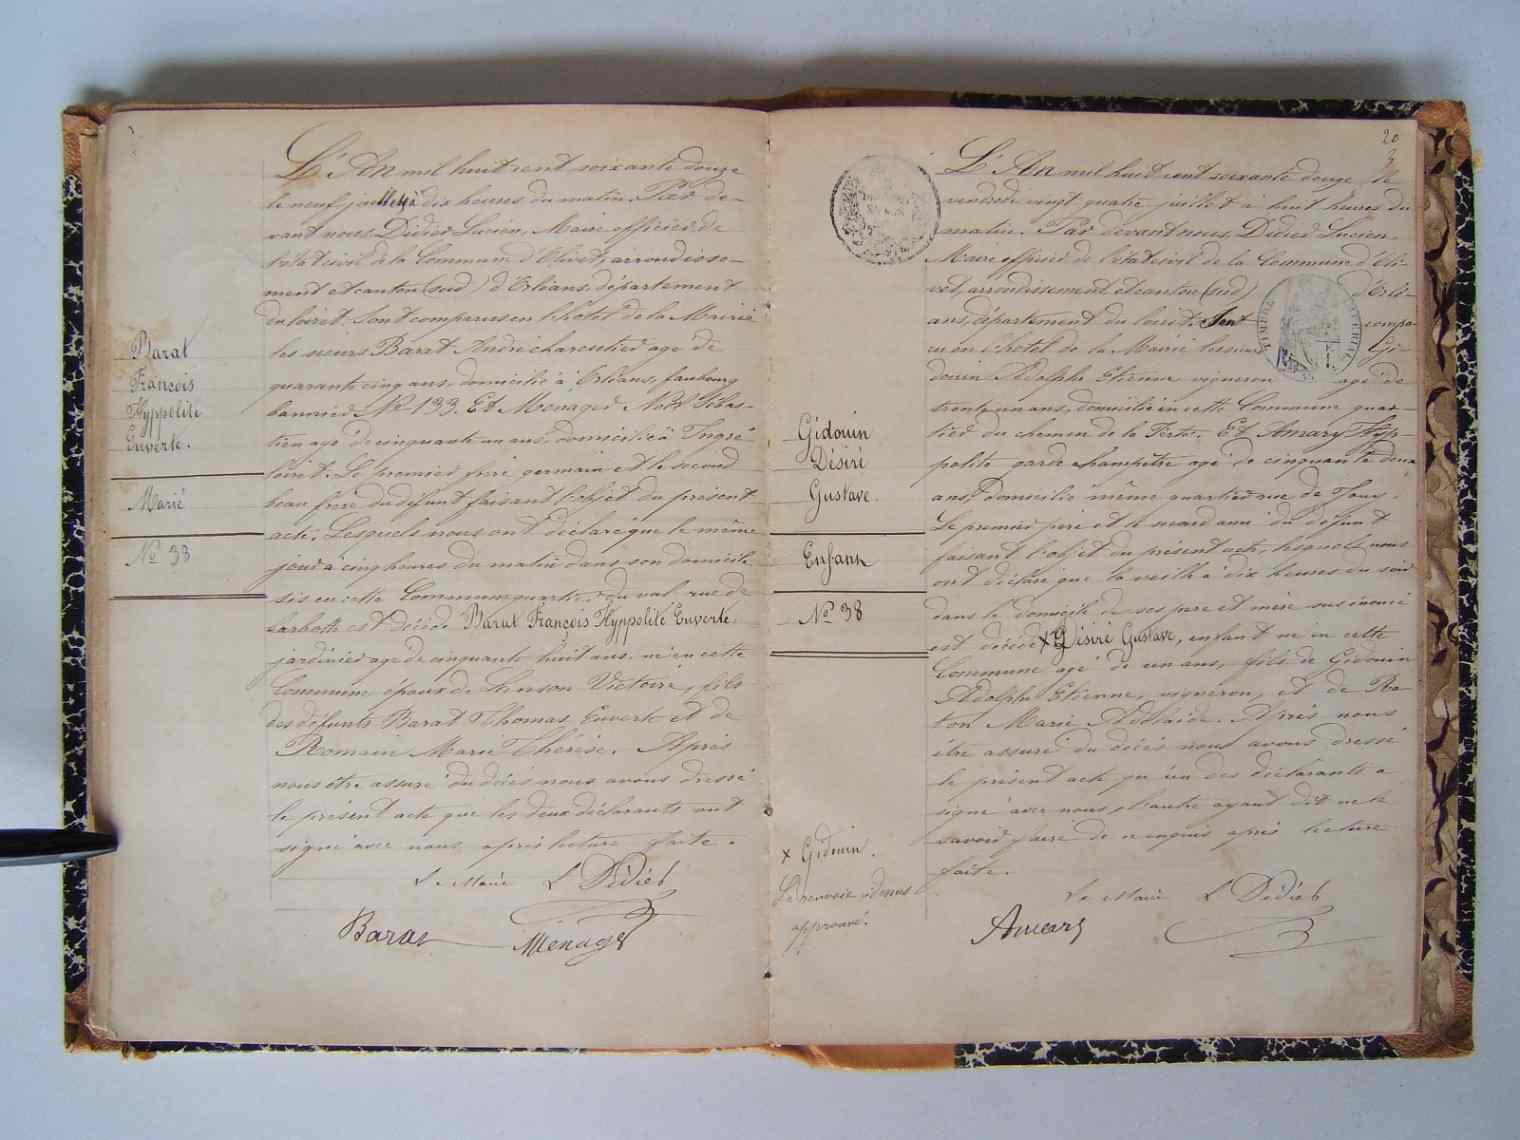 Barat
François
Hyppolite
Euverte.
Marié
Nº 38
L'An mil huit cent soixante douze
le neuf juillet à dix heures du matin. Par de-
vant nous Didier Lucien, Maire officier de
l'état civil de la Commune d'Olivet, arrondisse-
ment et canton (sud) d'Orléans, département
du loiret. Sont comparus en l'hôtel de la Mairie
les sieurs Barat André charcutier age de
quarante cinq ans, domicilié à Orléans, faubourg
bannier Nº 133. Et Menager Noël Sébas-
tien age de cinquante un ans, domicilié à Ingré
loiret. Le premier frère germain et le second
beau frère du défunt faisant l'objet du présent
acte. Lesquels nous ont déclaré que le même
jour à cinq heures du matin dans son domicile
sis en cette Commune quartier du val rue de
est décédé Barat François Hyppolite Euverte,
jardinier age de cinquante huit ans, né en cette
Commune époux de Victoire, fils
des defunts Barat Thomas Euverte et de
Romain Marie Thérèse. Après
nous être assuré du décès nous avons dressé
le présent acte que les deux déclarants ont
signé avec nous après lecture faite.
Le Maire L Didier
Barat Menager
20
L'An mil huit cent soixante douze le
vendredi vingt quatre juillet à huit heures du
matin. Par devant nous Didier Lucien,
Maire officier de l'état civil de la Commune d'Oli-
vet, arrondissement et canton (sud) d'Orlé-
ans, département du loiret. Sont compa-
ru en l'hôtel de la Mairie les sieurs Gi-
douin Adolphe Etienne vigneron age de
trente un ans, domicilié en cette Commune quar-
tier du chemin de la Ferté. Et Amary Hyp-
polite garde champêtre age de cinquante deux
ans, domicilié même quartier rue de
Le premier père et le second ami du défunt
faisant l'objet du présent acte, lesquels nous
ont déclaré que la veille à dix heures du soir
dans le domicile de ses père et mère sus énoncé
est décédé x Désiré Gustave, enfant né en cette
Commune agé de un ans, fils de Gidouin
Adolphe Etienne, vigneron, et de Ra-
ton Marie Adélaïde. Après nous
être assuré du décès nous avons dressé
le présent acte qu'un des déclarants a
signé avec nous, l'autre ayant dit ne le
savoir faire de ce enquis après lecture
faite.
Le Maire L Didier
Gidouin
Désiré
Gustave.
Enfant
Nº 38
x Gidouin.
Le renvoi ci dessus
approuvé.